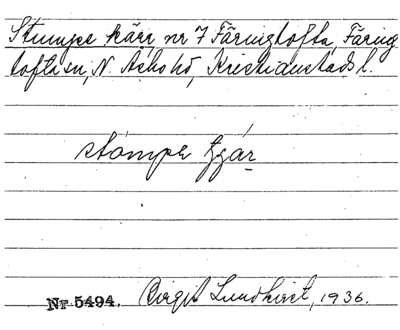 Stumpe kärr nr 7 Färingtofta, Färing
tofta sn, N. Åsbo hd, Kristianstads l.
stompe
Nr 5494. Birgit Lundkvist, 1936.